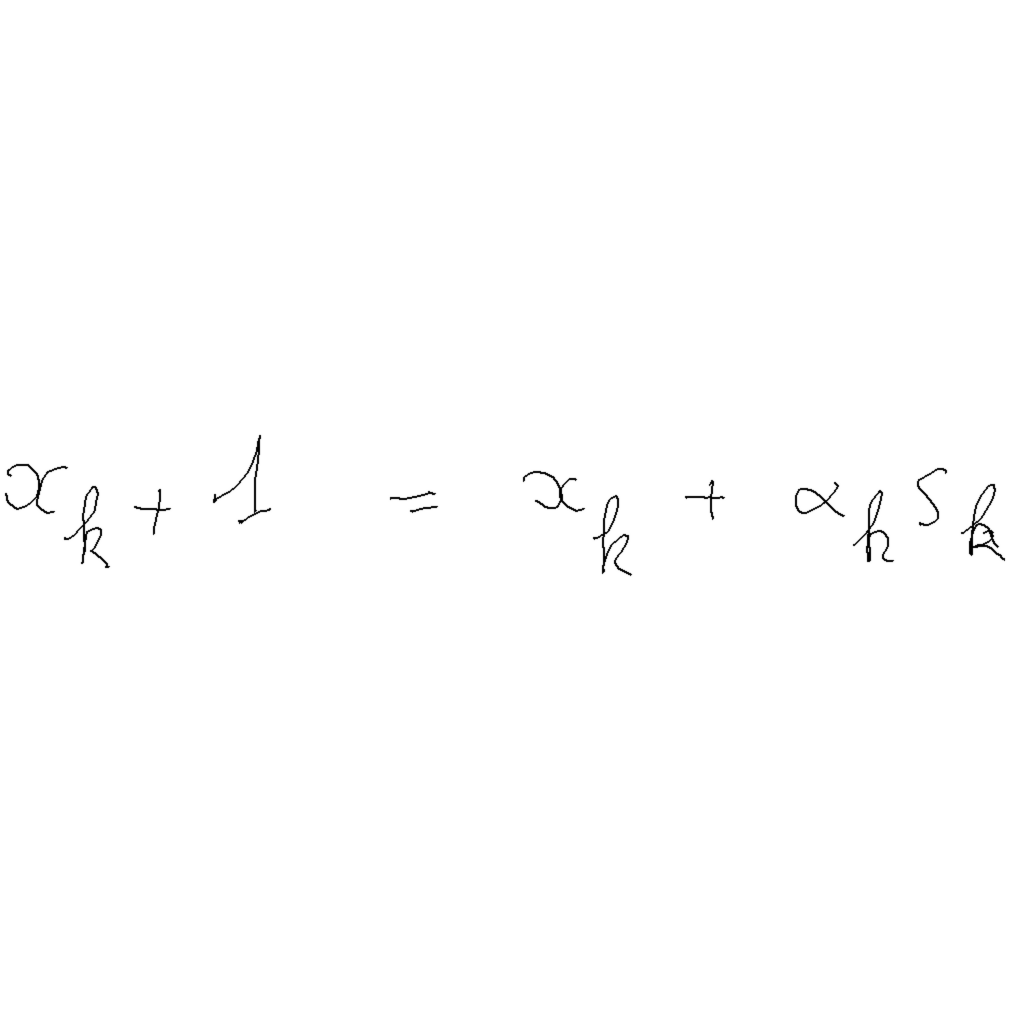 x_k + 1 = x_k + α_k s_k